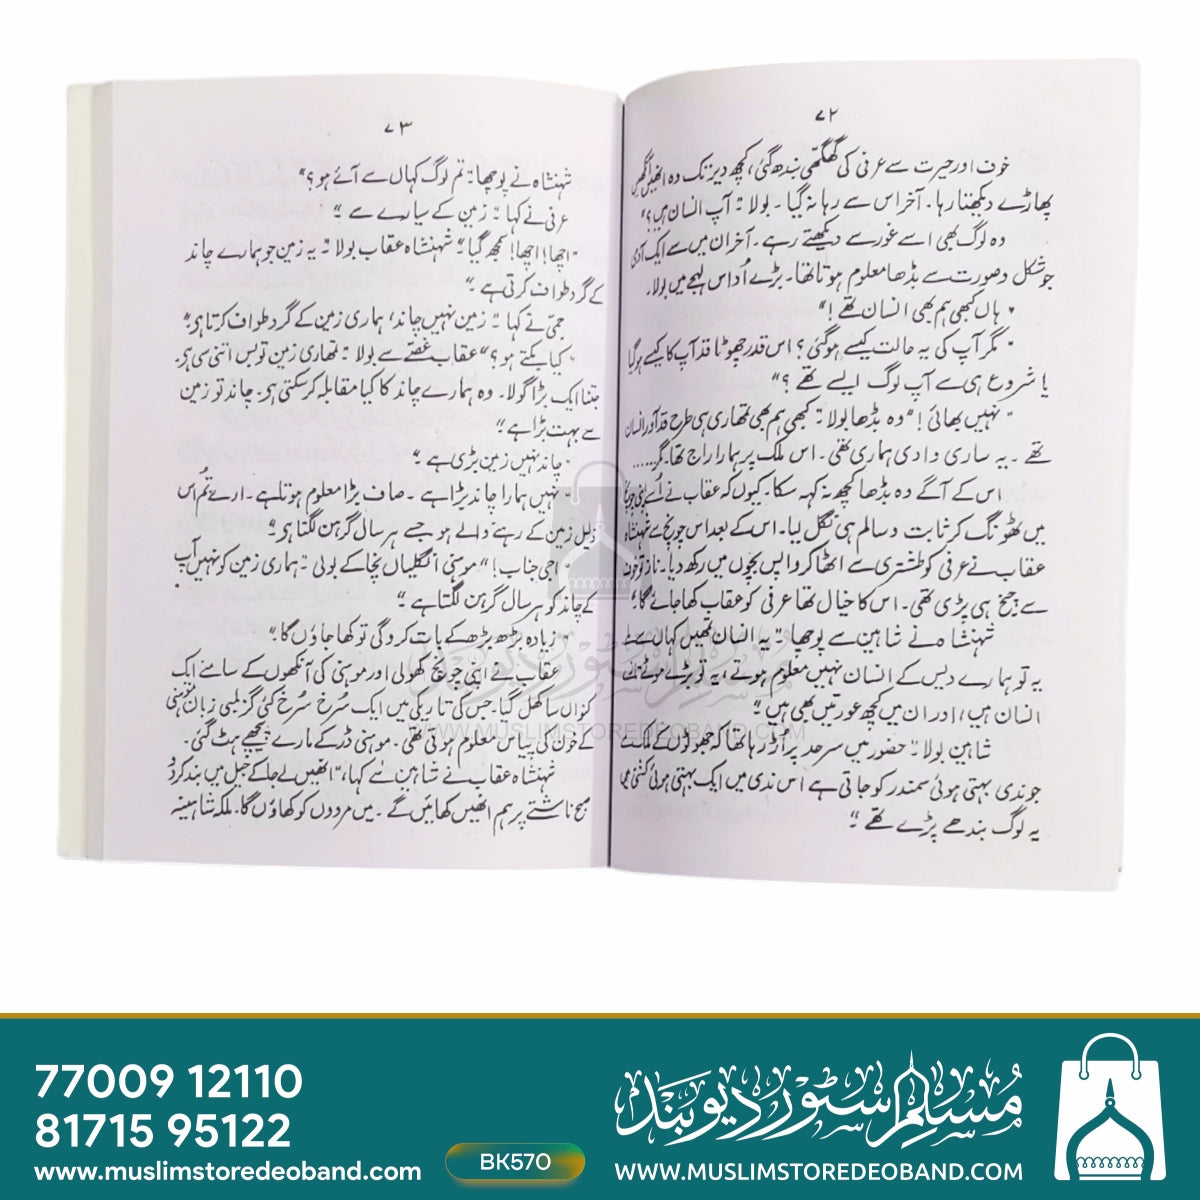 ۷۲
خوف اور حیرت سے عرفی کی گھگھی بندھ گئی، کچھ دیر تک وہ انھیں آنکھیں
پھاڑے دیکھتا رہا۔ آخر اس سے رہا نہ گیا۔ بولا: "آپ انسان ہیں؟"
وہ لوگ بھی اسے غور سے دیکھتے رہے۔ آخر ان میں سے ایک آدمی
جو شکل و صورت سے بڈھا معلوم ہوتا تھا۔ بڑے اُداس لہجے میں بولا۔
"ہاں کبھی ہم بھی انسان تھے!"
"مگر آپ کی یہ حالت کیسے ہو گئی؟ اس قدر چھوٹا قد آپ کا کیسے ہو گیا
یا شروع ہی سے آپ لوگ ایسے تھے؟"
"نہیں بھائی!" وہ بڈھا بولا: "کبھی ہم بھی تمھاری ہی طرح قد آور انسان
تھے۔ یہ ساری وادی ہماری تھی۔ اس ملک پر ہمارا راج تھا۔ مگر......
اس کے آگے وہ بڈھا کچھ نہ کہہ سکا۔ کیوں کہ عقاب نے اُسے اپنی چونچ
میں ٹھونگ کر ثابت و سالم ہی نگل لیا۔ اس کے بعد اس چونچ سے شہنشاہ
عقاب نے عرفی کو طشتری سے اٹھا کر واپس بچوں میں رکھ دیا۔ ناز تو خوف
سے چیخ ہی پڑی تھی۔ اس کا خیال تھا عرفی کو عقاب کھا جائے گا۔
شہنشاہ نے شاہین سے پوچھا: "یہ انسان تمھیں کہاں سے ملے
یہ تو ہمارے دیس کے انسان نہیں معلوم ہوتے، یہ تو بڑے موٹے تازے
انسان ہیں، اور ان میں کچھ عورتیں بھی ہیں"
شاہین بولا: "حضور میں سرحد پر اُڑ رہا تھا کہ جھولوں کے ملک سے
جو ندی بہتی ہوئی سمندر کو جاتی ہے اس ندی میں ایک بہتی ہوئی کشتی میں
یہ لوگ بندھے پڑے تھے۔"
۷۳
شہنشاہ نے پوچھا: "تم لوگ کہاں سے آئے ہو؟"
عرفی نے کہا: "زمین کے سیارے سے۔"
"اچھا! اچھا! سمجھ گیا" شہنشاہ عقاب بولا: "یہ زمین جو ہمارے چاند
کے گرد طواف کرتی ہے۔"
جمی نے کہا: "زمین نہیں چاند، ہماری زمین کے گرد طواف کرتا ہے"
"کیا بکتے ہو؟" عقاب غصے سے بولا: "تمھاری زمین تو بس اتنی سی ہے۔
جتنا ایک بڑا گولا۔ وہ ہمارے چاند کا کیا مقابلہ کر سکتی ہے۔ چاند تو زمین
سے بہت بڑا ہے"
"چاند نہیں زمین بڑی ہے۔"
"نہیں ہمارا چاند بڑا ہے۔ صاف بڑا معلوم ہوتا ہے۔ ارے تُم اس
ذلیل زمین کے رہنے والے ہو جسے ہر سال گرہن لگتا ہے"
"اجی جناب!" موہنی انگلیاں نچا کے بولی: "ہماری زمین کو نہیں آپ
کے چاند کو ہر سال گرہن لگتا ہے۔"
"زیادہ بڑھ بڑھ کے بات کرو گی تو کھا جاؤں گا۔"
عقاب نے اپنی چونچ کھولی اور موہنی کی آنکھوں کے سامنے ایک
کنواں سا کھل گیا۔ جس کی تاریکی میں ایک سُرخ سُرخ کئی گز لمبی زبان موہنی
کے خون کی پیاسی معلوم ہوتی تھی۔ موہنی ڈر کے مارے پیچھے ہٹ گئی۔
شہنشاہ عقاب نے شاہین سے کہا، "انھیں لے جا کے جیل میں بند کر دو
صبح ناشتے پر ہم انھیں کھائیں گے۔ میں مردوں کو کھاؤں گا۔ ملکہ شاہینہ
مسلم سٹور دیوبند
WWW.MUSLIMSTOREDEOBAND.COM
77009 12110
81715 95122
www.muslimstoredeoband.com
BK570
مسلم سٹور دیوبند
WWW.MUSLIMSTOREDEOBAND.COM